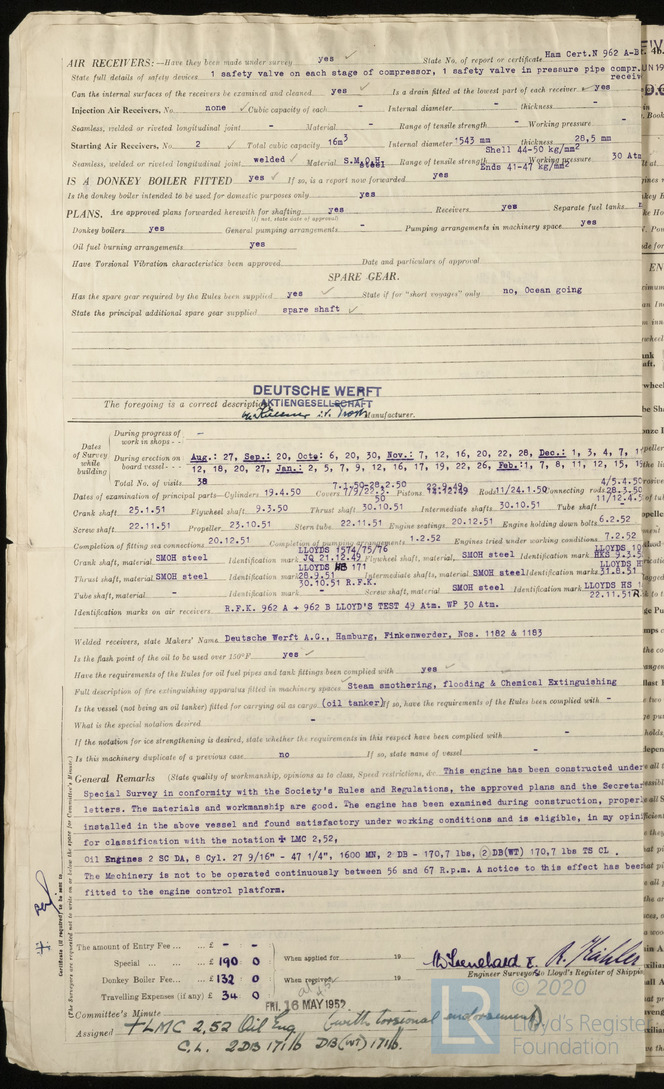 Ham Cert.N 962 A-B
AIR RECEIVERS:—Have they been made under survey yes ✓ State No. of report or certificate
State full details of safety devices 1 safety valve on each stage of compressor, 1 safety valve in pressure pipe compr.
receiv
Can the internal surfaces of the receivers be examined and cleaned yes ✓ Is a drain fitted at the lowest part of each receiver ✓ yes
Injection Air Receivers, No. none ✓ Cubic capacity of each - Internal diameter - thickness -
Seamless, welded or riveted longitudinal joint - Material - Range of tensile strength - Working pressure -
Starting Air Receivers, No. 2 ✓ Total cubic capacity 16m³ Internal diameter 1543 mm thickness 28,5 mm
Shell 44-50 kg/mm²
Seamless, welded or riveted longitudinal joint welded ✓ Material S.M.O.H. steel Range of tensile strength Ends 41-47 kg/mm² Working pressure 30 Atm
IS A DONKEY BOILER FITTED yes ✓ If so, is a report now forwarded yes
Is the donkey boiler intended to be used for domestic purposes only yes
PLANS. Are approved plans forwarded herewith for shafting yes Receivers yes Separate fuel tanks
(If not, state date of approval)
Donkey boilers yes General pumping arrangements - Pumping arrangements in machinery space yes
Oil fuel burning arrangements yes
Have Torsional Vibration characteristics been approved Date and particulars of approval
SPARE GEAR.
Has the spare gear required by the Rules been supplied yes ✓ State if for "short voyages" only no, Ocean going
State the principal additional spare gear supplied spare shaft ✓
DEUTSCHE WERFT
AKTIENGESELLSCHAFT
The foregoing is a correct description
Manufacturer.
Dates of Survey while building
During progress of work in shops - - -
During erection on board vessel - - - Aug.: 27, Sep.: 20, Octo: 6, 20, 30, Nov.: 7, 12, 16, 20, 22, 28, Dec.: 1, 3, 4, 7,
12, 18, 20, 27, Jan.: 2, 5, 7, 9, 12, 16, 17, 19, 22, 26, Feb.: 1, 7, 8, 11, 12, 15,
Total No. of visits 38
Dates of examination of principal parts—Cylinders 19.4.50 Covers Pistons Rods 11/24.1.50 Connecting rods 28.3.50
Crank shaft 25.1.51 Flywheel shaft 9.3.50 Thrust shaft 30.10.51 Intermediate shafts 30.10.51 Tube shaft -
Screw shaft 22.11.51 Propeller 23.10.51 Stern tube 22.11.51 Engine seatings 20.12.51 Engine holding down bolts 6.2.52
Completion of fitting sea connections 20.12.51 Completion of pumping arrangements 1.2.52 Engines tried under working conditions 7.2.52
LLOYDS 1574/75/76
Crank shaft, material SMOH steel Identification mark JQ 21.12.49 Flywheel shaft, material SMOH steel Identification mark HKS 9.3.5
LLOYDS HB 171
Thrust shaft, material SMOH steel Identification mark 28.9.51 30.10.51 R.F.K. Intermediate shafts, material SMOH steel Identification marks 31.8.51
Tube shaft, material - Identification mark - Screw shaft, material SMOH steel Identification mark LLOYDS HS 22.11.51
Identification marks on air receivers R.F.K. 962 A + 962 B LLOYD'S TEST 49 Atm. WP 30 Atm.
Welded receivers, state Makers' Name Deutsche Werft A.G., Hamburg, Finkenwerder, Nos. 1182 & 1183
Is the flash point of the oil to be used over 150°F yes ✓
Have the requirements of the Rules for oil fuel pipes and tank fittings been complied with yes ✓
Full description of fire extinguishing apparatus fitted in machinery spaces Steam smothering, flooding & Chemical Extinguishing
Is the vessel (not being an oil tanker) fitted for carrying oil as cargo (oil tanker) If so, have the requirements of the Rules been complied with -
What is the special notation desired -
If the notation for ice strengthening is desired, state whether the requirements in this respect have been complied with -
Is this machinery duplicate of a previous case no If so, state name of vessel -
General Remarks (State quality of workmanship, opinions as to class, Speed restrictions, &c. This engine has been constructed under
Special Survey in conformity with the Society's Rules and Regulations, the approved plans and the Secretar
letters. The materials and workmanship are good. The engine has been examined during construction, properl
installed in the above vessel and found satisfactory under working conditions and is eligible, in my opini
for classification with the notation ✠ LMC 2,52,
Oil Engines 2 SC DA, 8 Cyl. 27 9/16" - 47 1/4", 1600 MN, 2 DB - 170,7 lbs, 2 DB(WT) 170,7 lbs TS CL .
The Machinery is not to be operated continuously between 56 and 67 R.p.m. A notice to this effect has been
fitted to the engine control platform.
Certificate (if required) to be sent to
(The Surveyors are requested not to write on or below the space for Committee's Minute.)
The amount of Entry Fee ... £ - -
Special ... £ 190 0
Donkey Boiler Fee... £ 132 0
Travelling Expenses (if any) £ 34 0
When applied for 19
When received 19
Engine Surveyors to Lloyd's Register of Shippin
FRI. 16 MAY 1952
Committee's Minute
Assigned +LMC 2,52 Oil Eng (with torsional endorsement)
C.L. 2DB 171lb DB(WT) 171lb.
LR
© 2020
Lloyd's Register
Foundation